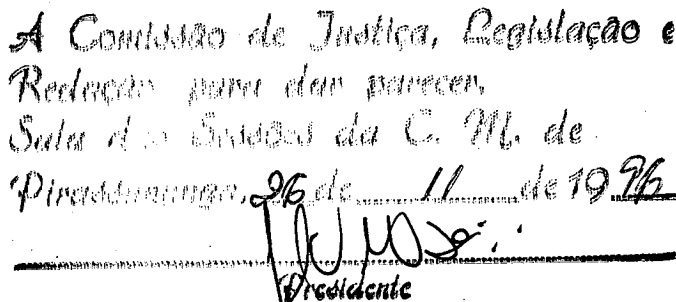 A Comissão de Justiça, Legislação e
Redação para dar parecer.
Sala das Sessões da C. M. de
Pirassununga, 26 de 11 de 1996
Presidente